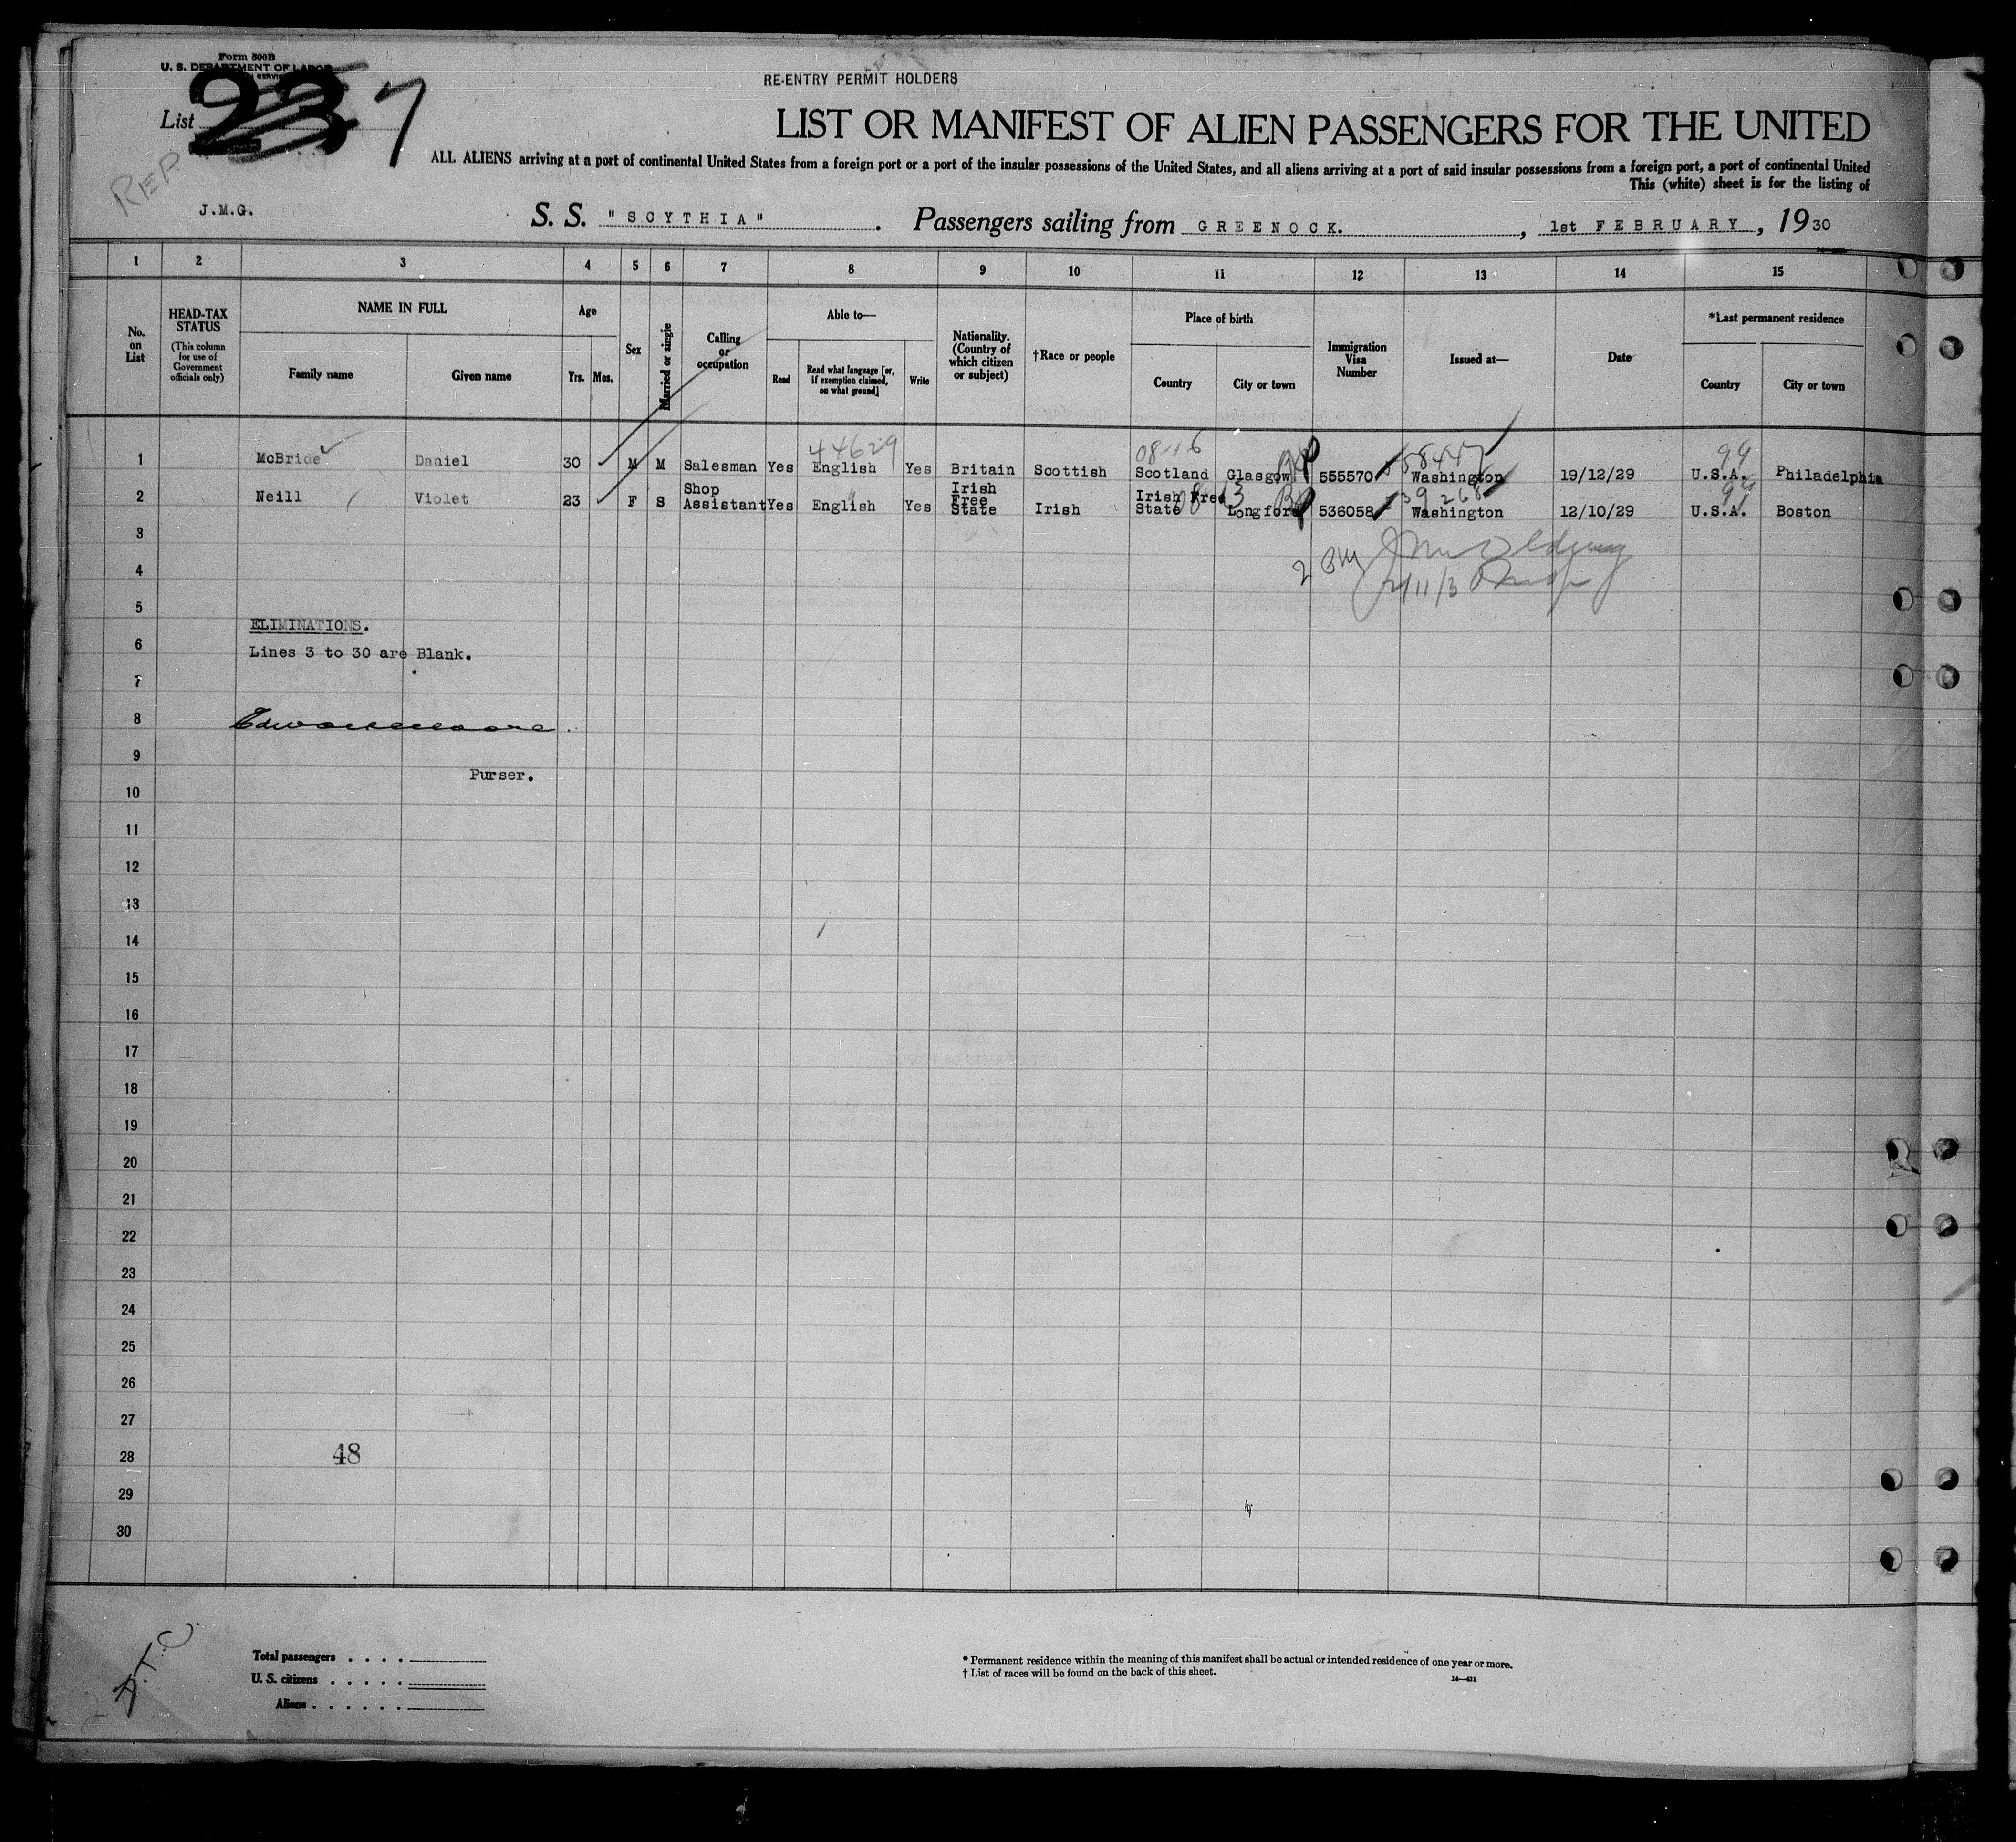 Form 500B
U. S. DEPARTMENT OF LABOR
RE-ENTRY PERMIT HOLDERS
List 23 7
LIST OR MANIFEST OF ALIEN PASSENGERS FOR THE UNITED
ALL ALIENS arriving at a port of continental United States from a foreign port or a port of the insular possessions of the United States, and all aliens arriving at a port of said insular possessions from a foreign port, a port of continental United
This (white) sheet is for the listing of
J.M.G.
S. S. "SCYTHIA". Passengers sailing from GREENOCK., 1st FEBRUARY, 1930
1 2 3 4 5 6 7 8 9 10 11 12 13 14 15
No. on List
HEAD-TAX STATUS (This column for use of Government officials only)
NAME IN FULL
Family name Given name
Age
Yrs. Mos.
Sex
Married or single
Calling or occupation
Able to—
Read Read what language [or, if exemption claimed, on what ground] Write
Nationality. (Country of which citizen or subject)
†Race or people
Place of birth
Country City or town
Immigration Visa Number
Issued at—
Date
*Last permanent residence
Country City or town
44629 08-16 58447 99
1 McBride Daniel 30 M M Salesman Yes English Yes Britain Scottish Scotland Glasgow 555570 Washington 19/12/29 U.S.A. Philadelphia
39268
2 Neill Violet 23 F S Shop Assistant Yes English Yes Irish Free State Irish Irish Free State Longford 536058 Washington 12/10/29 U.S.A. Boston
3
4
5
ELIMINATIONS.
6
Lines 3 to 30 are Blank.
7
8
9
Purser.
10
11
12
13
14
15
16
17
18
19
20
21
22
23
24
25
26
27
28 48
29
30
Total passengers . . . .
U. S. citizens . . . . .
Aliens . . . . . .
* Permanent residence within the meaning of this manifest shall be actual or intended residence of one year or more.
† List of races will be found on the back of this sheet.
14—431